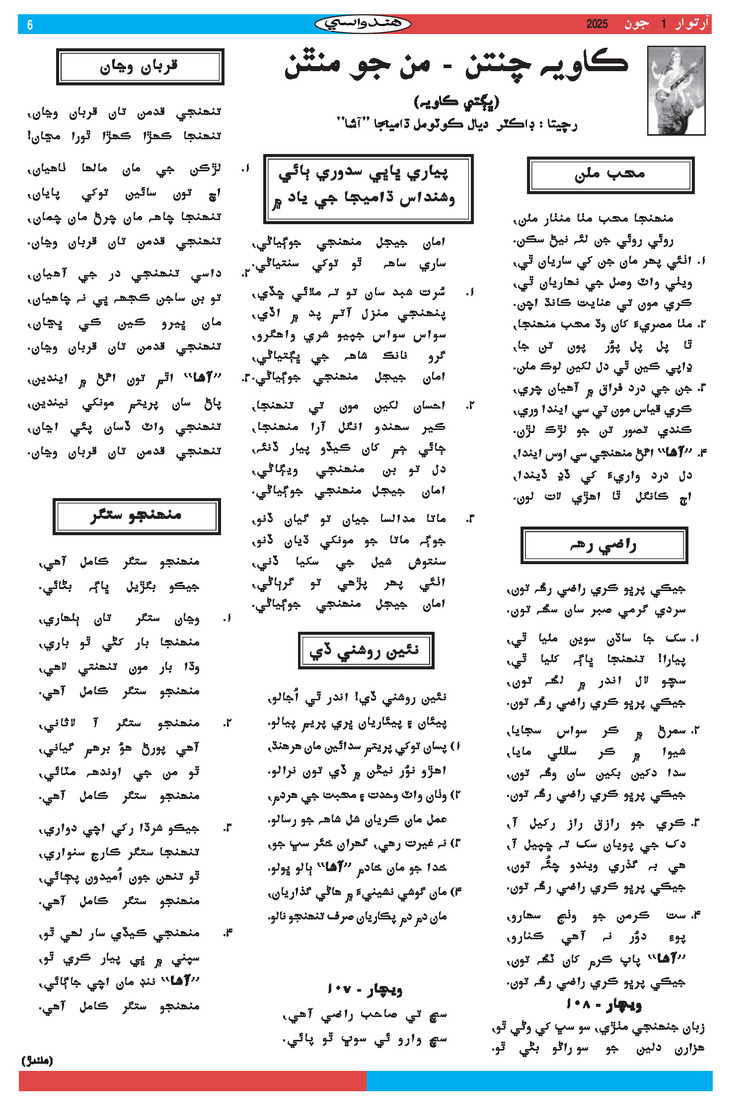 آرتوار 1 جون 2025
هندواسي
6
ڪاويہ چنتن - من جو منٿن
(ڀڳتي ڪاويہ)
رچيتا : ڊاڪٽر ديال ڪوٽومل ڌاميجا ”آشا“
مھب ملن
منھنجا مھب مٺا منٺار ملن،
روئي روئي جن لئہ نيڻ سڪن.
۱. انئي پھر مان جن کي ساريان ٿي،
ويٺي واٽ وصل جي نھاريان ٿي،
ڪري مون تي عنايت ڪانڌ اچن.
۲. مٺا مصريءَ کان وڌ مھب منھنجا،
ٿا پل پل پوُر پون تن جا،
ڍاپي ڪين ٿي دل لکين لوڪ ملن.
۳. جن جي درد فراق ۾ آھيان چري،
ڪري قياس مون تي سي ايندا وري،
ڪندي تصور تن جو لڙڪ لڙن.
۴. ”آشا“ اڱڻ منھنجي سي اوس ايندا،
دل درد واريءَ کي ڏڍ ڏيندا،
اڄ ڪانگل ٿا اھڙي لات لون.
راضي رھہ
جيڪي پريڀو ڪري راضي رھہ تون،
سردي گرمي صبر سان سھہ تون.
۱. سڪ جا ساڌن سوين مليا ٿي،
پيارا! تنھنجا ڀاڳہ کليا ٿي،
سچو لال اندر ۾ لھہ تون،
جيڪي پريڀو ڪري راضي رھہ تون.
۲. سمرڻ ۾ ڪر سواس سجايا،
شيوا ۾ ڪر سڦلي مايا،
سدا دکين بکين سان وھہ تون،
جيڪي پريڀو ڪري راضي رھہ تون.
۳. ڪري جو رازق راز رکيل آ،
دک جي پويان سک تہ ڇپيل آ،
ھي بہ گذري ويندو چئُہ تون،
جيڪي پريڀو ڪري راضي رھہ تون.
۴. ست ڪرمن جو وٺج سھارو،
پوءِ دوُر نہ آھي ڪنارو،
”آشا“ پاپ ڪرم کان ٽھہ تون،
جيڪي پريڀو ڪري راضي رھہ تون.
ويچار - ۱۰۸
زبان جنھنجي مٺڙي، سو سڀ کي وڻي ٿو،
ھزارن دلين جو سو راڻو بڻي ٿو.
پياري ڀاڀي سدوري ٻائي
وشنداس ڌاميجا جي ياد ۾
امان جيجل منھنجي جوڳياڻي،
ساري ساھہ ٿو توکي سنتياڻي.
۱. سُرت شبد سان تو تہ ملائي ڇڏي،
پنھنجي منزل آتم پد ۾ اڏي،
سواس سواس جپيو شري واھگرو،
گرو نانڪ شاھہ جي ڀڳتياڻي،
امان جيجل منھنجي جوڳياڻي.
۲. احسان لکين مون تي تنھنجا،
ڪير سھندو انگل آرا منھنجا،
ڄائي ڄم کان ڪيڏو پيار ڏنئہ،
دل تو بن منھنجي ويڳاڻي،
امان جيجل منھنجي جوڳياڻي.
۳. ماتا مدالسا جيان تو گيان ڏنو،
جوڳہ ماتا جو مونکي ڌيان ڏنو،
سنتوش شيل جي سکيا ڏني،
انئي پھر پڙھي تو گرٻاڻي،
امان جيجل منھنجي جوڳياڻي.
نئين روشني ڏي
نئين روشني ڏي! اندر ٿي اُجالو،
پيئان ۽ پيئاريان ڀري پريم پيالو.
۱) پسان توکي پريتم سدائين مان ھرھنڌ،
اھڙو نوُر نيڻن ۾ ڏي تون نرالو.
۲) وٺان واٽ وحدت ۽ محبت جي ھردم،
عمل مان ڪريان شل شاھہ جو رسالو.
۳) نہ غيرت رھي، گھران خئر سڀ جو،
خدا جو مان خادم ”آشا“ ٻالو ڀولو.
۴) مان گوشي نشينيءَ ۾ ھاڻي گذاريان،
مان دم دم پڪاريان صرف تنھنجو نالو.
ويچار - ۱۰۷
سچ تي صاحب راضي آھي،
سچ وارو ئي سوڀ ٿو پائي.
قربان وڃان
تنھنجي قدمن تان قربان وڃان،
تنھنجا ڪھڙا ڪھڙا ٿورا مڃان!
۱. لڙڪن جي مان مالھا ٺاھيان،
اچ تون سائين توکي پايان،
تنھنجا چاھہ مان چرڻ مان چمان،
تنھنجي قدمن تان قربان وڃان.
۲. داسي تنھنجي در جي آھيان،
تو بن ساجن ڪجھہ ڀي نہ چاھيان،
مان ٻيرو ڪين کي ڀڃان،
تنھنجي قدمن تان قربان وڃان.
۳. ”آشا“ اٿم تون اڱڻ ۾ ايندين،
پاڻ سان پريتم مونکي نيندين،
تنھنجي واٽ ڏسان پئي اڃان،
تنھنجي قدمن تان قربان وڃان.
منھنجو ستگر
منھنجو ستگر ڪامل آھي،
جيڪو بگڙيل ڀاڳہ بڻائي.
۱. وڃان ستگر تان ٻلھاري،
منھنجا بار کڻي ٿو باري،
وڏا بار مون تنھنتي لاھي،
منھنجو ستگر ڪامل آھي.
۲. منھنجو ستگر آ لاثاني،
آھي پورڻ ھوُ برھم گياني،
ٿو من جي اونڌھہ مٽائي،
منھنجو ستگر ڪامل آھي.
۳. جيڪو شرڌا رکي اچي دواري،
تنھنجا ستگر ڪارج سنواري،
ٿو تنھن جون اُميدون پڄائي،
منھنجو ستگر ڪامل آھي.
۴. منھنجي ڪيڏي سار لھي ٿو،
سپني ۾ ڀي پيار ڪري ٿو،
”آشا“ ننڊ مان اچي جاڳائي،
منھنجو ستگر ڪامل آھي.
(ھلندڙ)